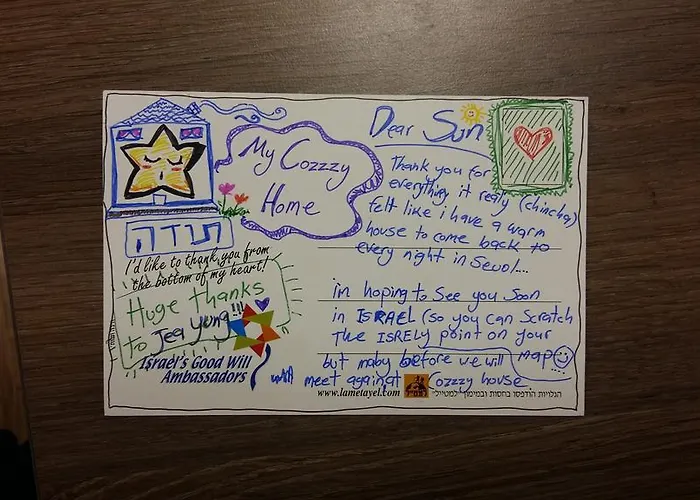 My Cozzzy
Home
תודה
I'd like to thank you from
the bottom of my heart!
Huge thanks
to Jea yung!!!
Israel's Good Will
Ambassadors
Dear Sun
Thank you for
everything it really (chincha)
felt like i have a warm
house to come back to
every night in Seuol...
im hoping to See you Soon
in ISRAEL (so you can Scratch
The ISRELY point on your
map
but maby before we will
meet against Cozzzy house.
www.lametayel.com
הגלויות הודפסו בחסות ובמימון למטייל